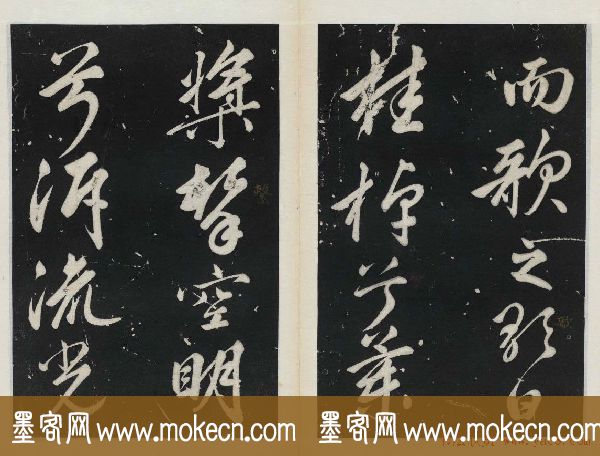 而歌之歌曰
桂棹兮蘭
槳擊空明
兮泝流光
墨客网 www.mokecn.com 墨客网 www.mokecn.com